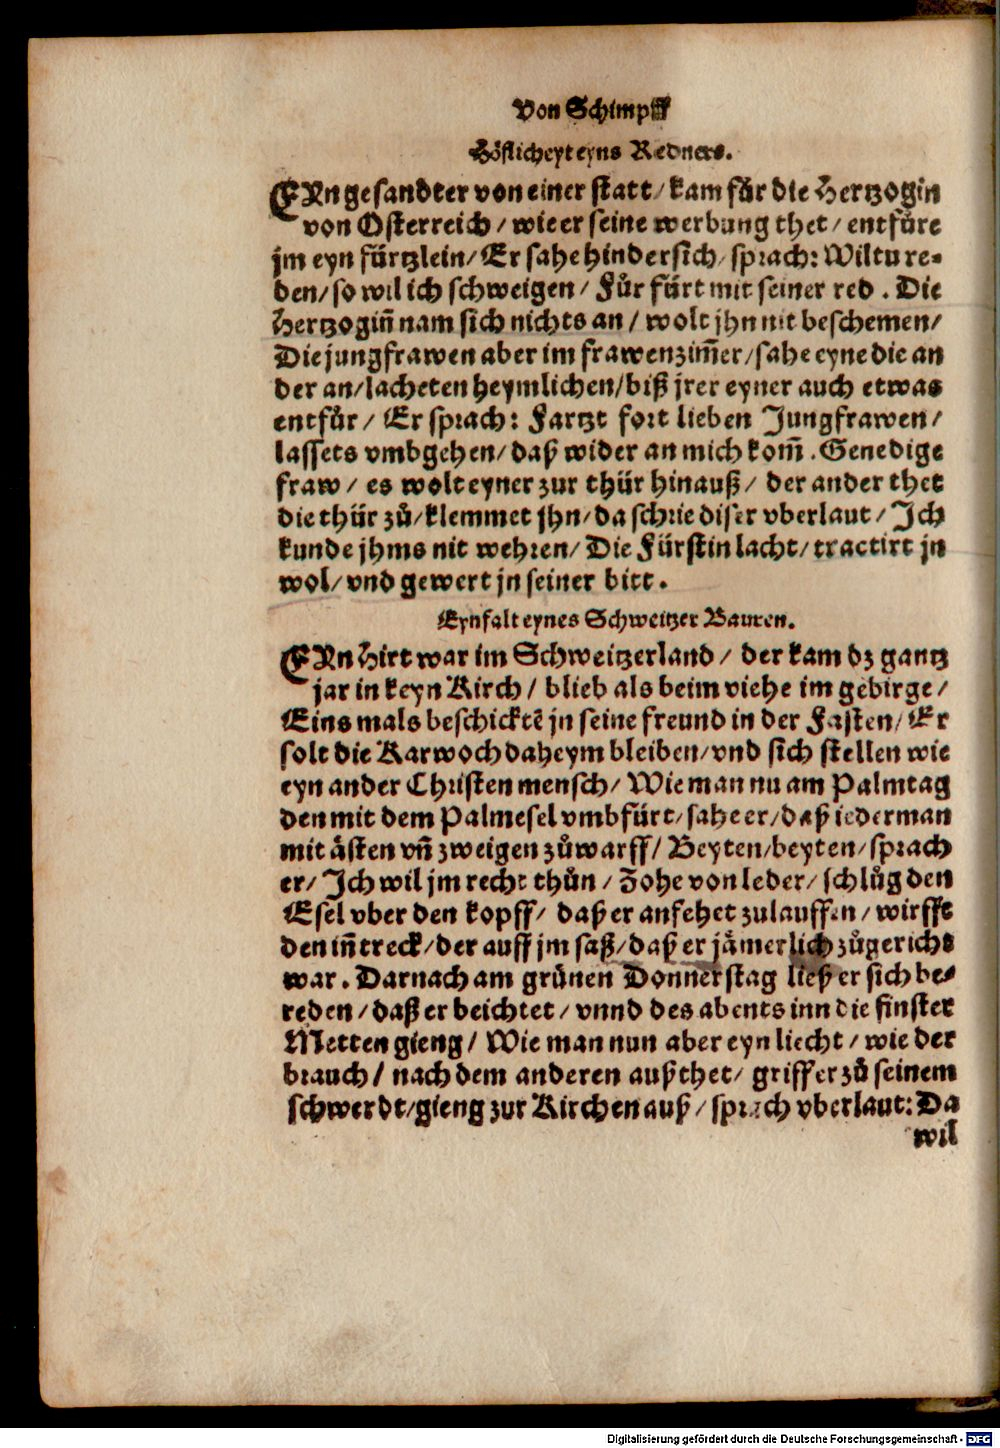 Von Schimpff
Höflicheyt eyns Redners.
EYn gesandter von einer statt / kam für die Hertzogin
von Osterreich / wie er seine werbung thet / entfüre
jm eyn fürtzlein / Er sahe hindersich / sprach: Wiltu re-
den / so wil ich schweigen / Fůr fürt mit seiner red . Die
Hertzogin̄ nam sich nichts an / wolt jhn nit beschemen /
Die jungfrawen aber im frawenzim̄er / sahe eyne die an
der an / lacheten heymlichen / biß jrer eyner auch etwas
entfůr / Er sprach: Fartzt fort lieben Jungfrawen /
lassets vmbgehen / daß wider an mich kom̄ . Genedige
fraw / es wolt eyner zur thür hinauß / der ander thet
die thür zů / klemmet jhn / da schrie diser vberlaut / Ich
kunde jhms nit wehren / Die Fürstin lacht / tractirt jn
wol / vnd gewert jn seiner bitt .
Eynfalt eynes Schweitzer Bauren.
EYn Hirt war im Schweitzerland / der kam dz gantz
jar in keyn Kirch / blieb als beim viehe im gebirge /
Eins mals beschicktē jn seine freund in der Fasten / Er
solt die Karwoch daheym bleiben / vnd sich stellen wie
eyn ander Christen mensch / Wie man nu am Palmtag
den mit dem Palmesel vmbfürt / sahe er / daß iederman
mit ästen vn̄ zweigen zůwarff / Beyten / beyten / sprach
er / Ich wil jm recht thůn / Zohe von leder / schlůg den
Esel vber den kopff / daß er anfehet zulauffen / wirfft
den in̄ treck / der auff jm saß / daß er jämerlich zůgericht
war . Darnach am grünen Donnerstag ließ er sich be-
reden / daß er beichtet / vnnd des abents inn die finster
Metten gieng / Wie man nun aber eyn liecht / wie der
brauch / nach dem anderen außthet / griff er zů seinem
schwerdt / gieng zur Kirchen auß / sprach vberlaut: Da
wil
Digitalisierung gefördert durch die Deutsche Forschungsgemeinschaft - DFG